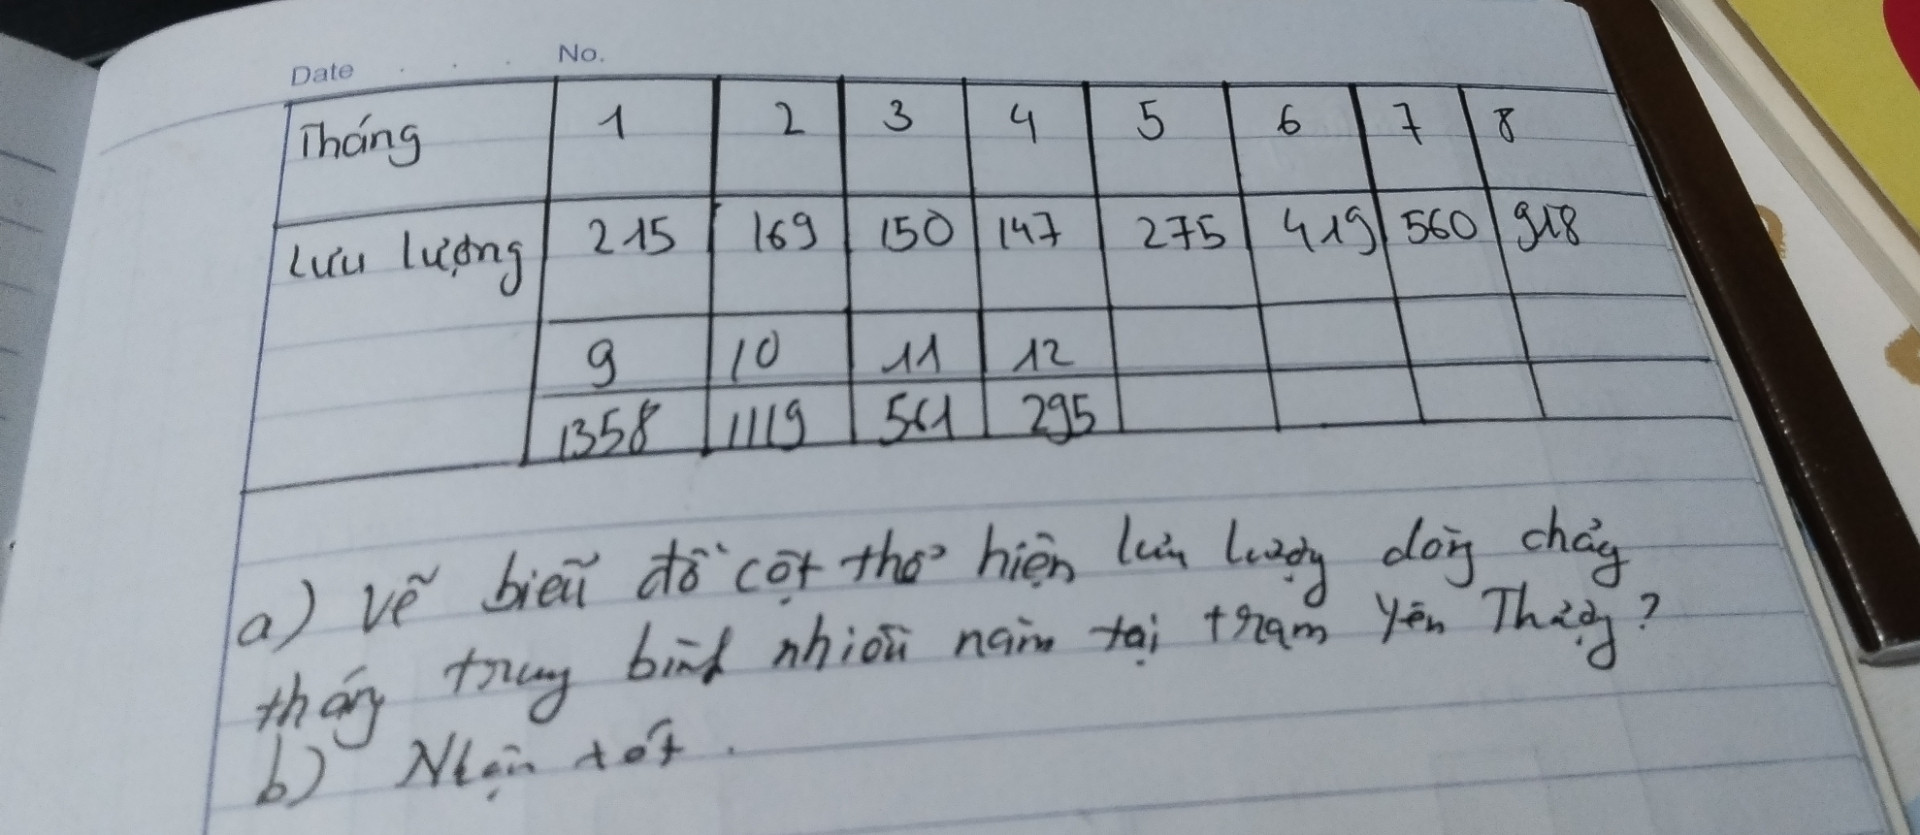 Date No.
Tháng 1 2 3 4 5 6 7 8
Lưu lượng 215 169 150 147 275 419 560 918
9 10 11 12
1358 1119 561 295
a) Vẽ biểu đồ cột thể hiện lưu lượng dòng chảy
tháng trung bình nhiều năm tại trạm Yên Thượng?
b) Nhận xét.